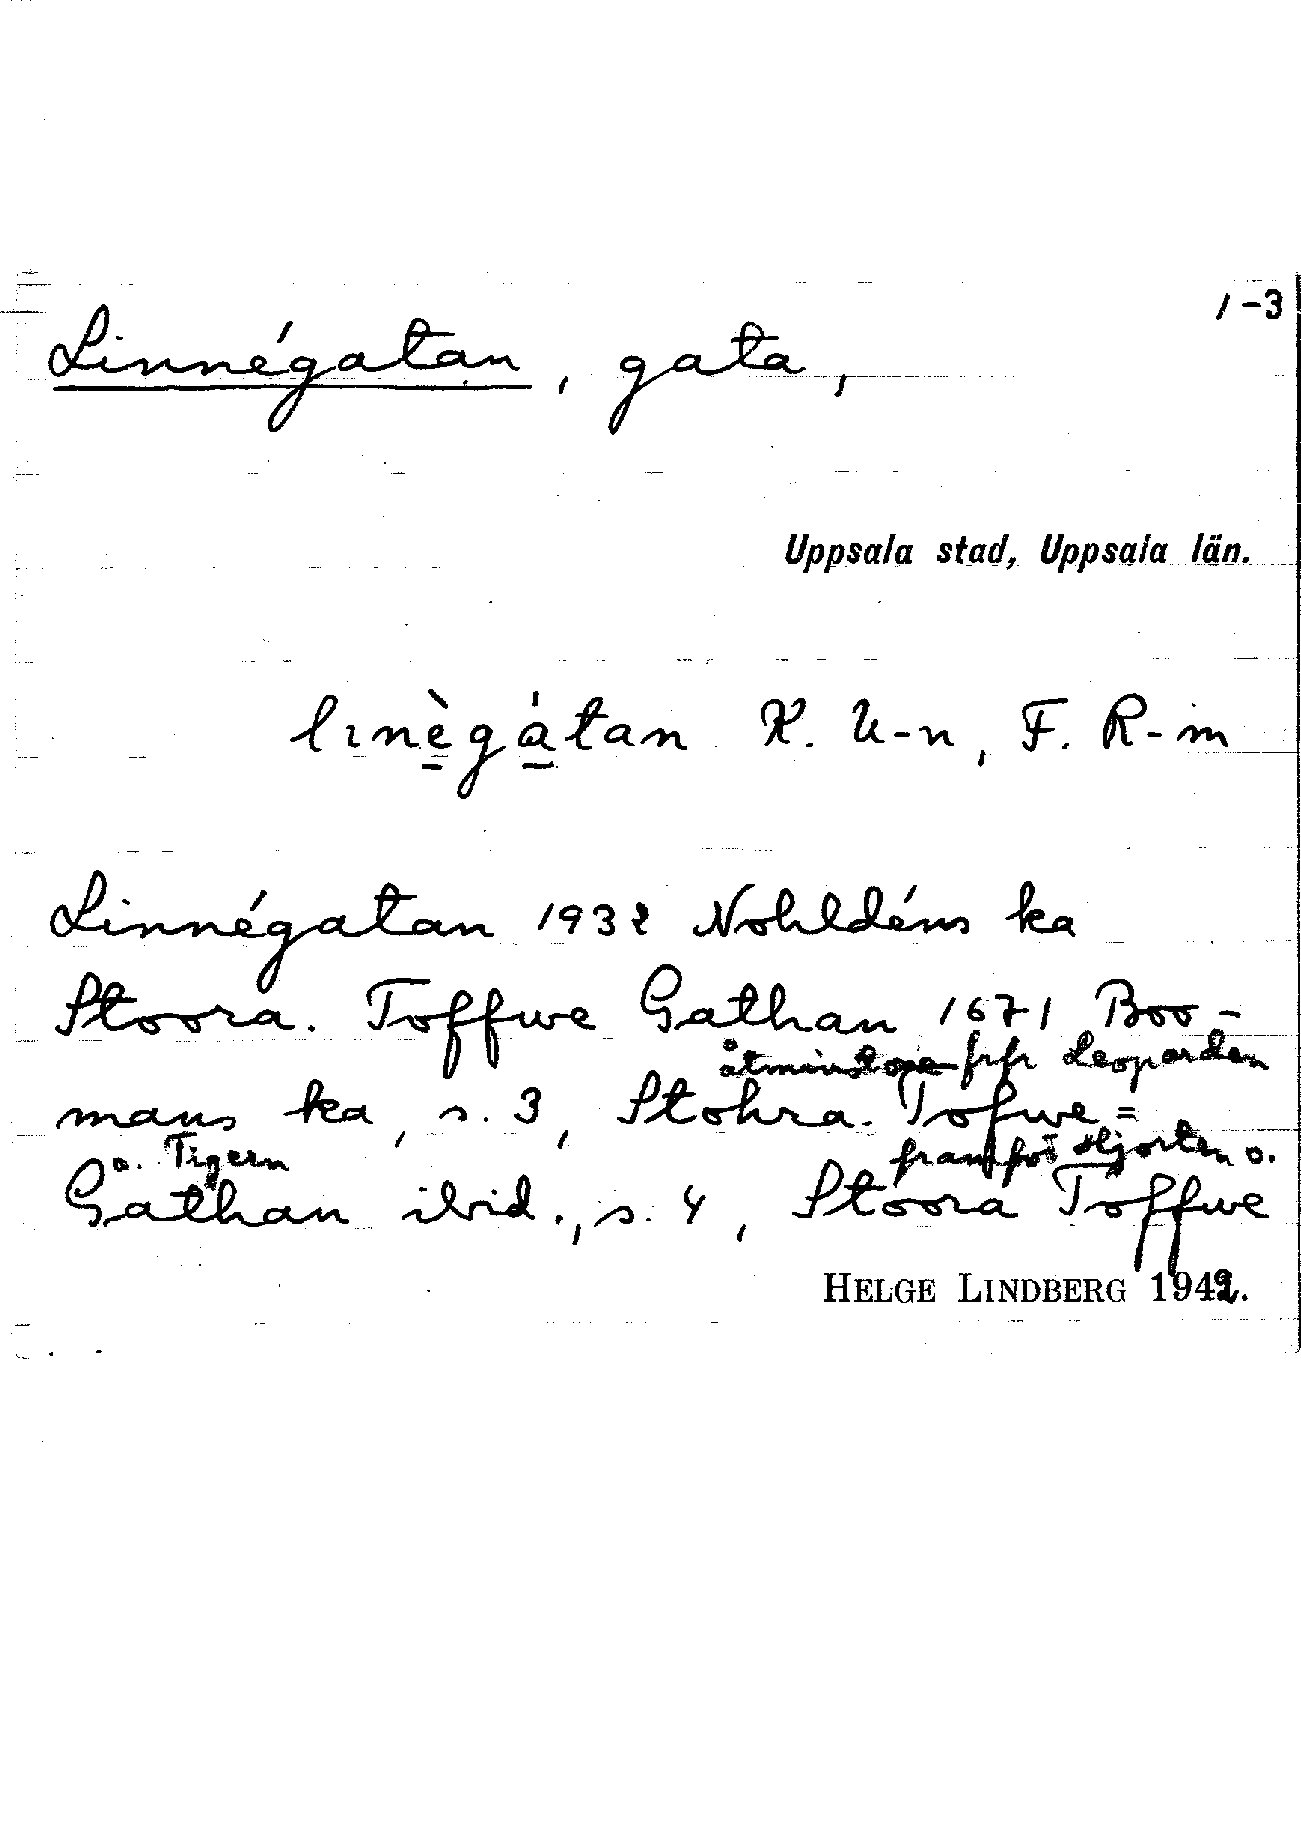 1-3
Linnégatan, gata,
Uppsala stad, Uppsala län.
lınègátan K. U-n, F. R-m
Linnégatan 1932 Nohldéns ka
Stoora. Toffwe Gathan 1671 Boo-
åtminstone frfr Leoparden
mans ka, s. 3, Stohra. Tofwe=
o. Tigern framför Hjorten o.
Gathan ibid., s. 4, Stoora Toffwe
HELGE LINDBERG 1942.